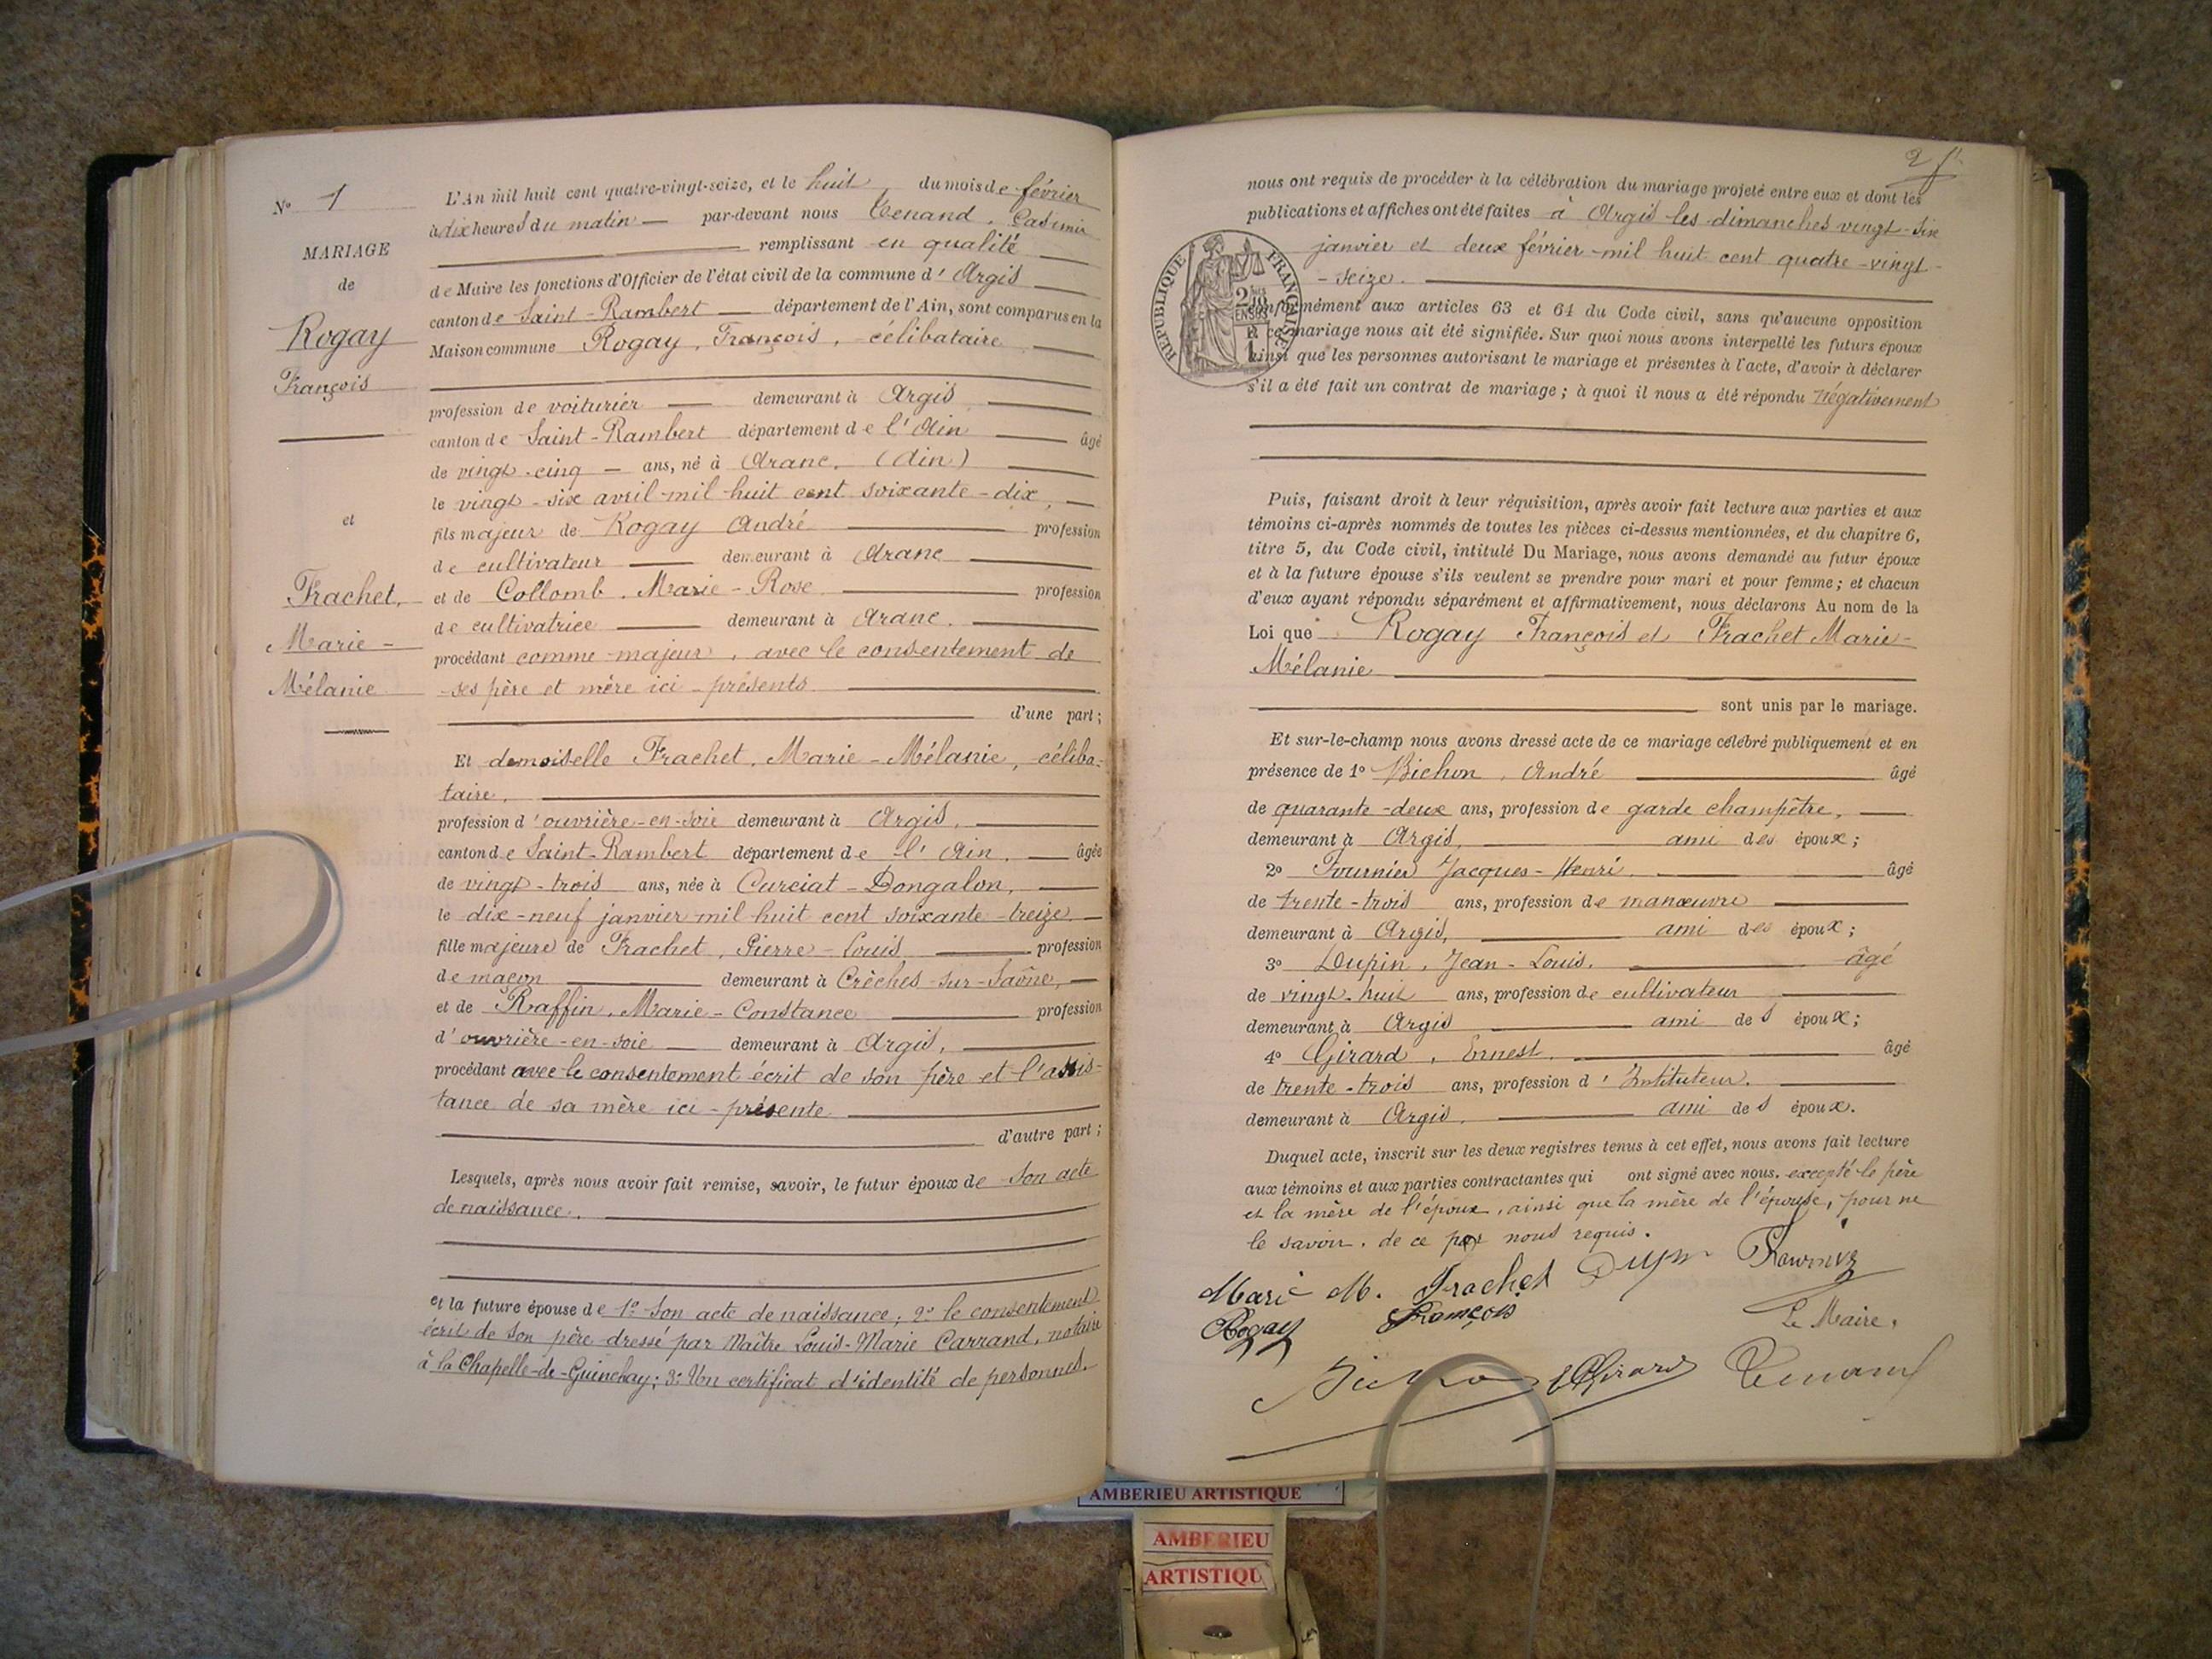 N° 1
MARIAGE
de
Rogay
François
et
Frachet,
Marie-
Mélanie
L'An mil huit cent quatre-vingt-seize, et le huit, du mois de février
à dix heures du matin — par-devant nous Tenand, Casimir
remplissant en qualité
de Maire les fonctions d'Officier de l'état civil de la commune d'Argis
canton de Saint-Rambert — département de l'Ain, sont comparus en la
Maison commune Rogay, François, célibataire
profession de voiturier — demeurant à Argis
canton de Saint-Rambert département de l'Ain — âgé
de vingt-cinq — ans, né à Aranc, (Ain)
le vingt-six avril mil huit cent soixante-dix,
fils majeur de Rogay André — profession
de cultivateur — demeurant à Aranc
et de Collomb, Marie-Rose — profession
de cultivatrice — demeurant à Aranc.
procédant comme majeur, avec le consentement de
ses père et mère ici-présents
d'une part;
Et demoiselle Frachet, Marie-Mélanie, céliba-
taire,
profession d'ouvrière-en-soie demeurant à Argis,
canton de Saint-Rambert département de l'Ain, — âgée
de vingt-trois ans, née à Curciat-Dongalon,
le dix-neuf janvier mil huit cent soixante-treize,
fille majeure de Frachet, Pierre-Louis, — profession
de maçon — demeurant à Crèches-sur-Saône,
et de Raffin, Marie-Constance — profession
d'ouvrière-en-soie — demeurant à Argis,
procédant avec le consentement écrit de son père et l'assis-
tance de sa mère ici-présente
d'autre part;
Lesquels, après nous avoir fait remise, savoir, le futur époux de son acte
de naissance.
et la future épouse de 1° son acte de naissance; 2° le consentement
écrit de son père dressé par Maître Louis-Marie Carrand, notaire
à la Chapelle-de-Guinchay; 3° Un certificat d'identité de personnes.
2
nous ont requis de procéder à la célébration du mariage projeté entre eux et dont les
publications et affiches ont été faites à Argis les dimanches vingt-six
janvier et deux février mil huit cent quatre-vingt-
-seize.
RÉPUBLIQUE FRANÇAISE
conformément aux articles 63 et 64 du Code civil, sans qu'aucune opposition
à ce mariage nous ait été signifiée. Sur quoi nous avons interpellé les futurs époux
ainsi que les personnes autorisant le mariage et présentes à l'acte, d'avoir à déclarer
s'il a été fait un contrat de mariage; à quoi il nous a été répondu négativement
Puis, faisant droit à leur réquisition, après avoir fait lecture aux parties et aux
témoins ci-après nommés de toutes les pièces ci-dessus mentionnées, et du chapitre 6,
titre 5, du Code civil, intitulé Du Mariage, nous avons demandé au futur époux
et à la future épouse s'ils veulent se prendre pour mari et pour femme; et chacun
d'eux ayant répondu séparément et affirmativement, nous déclarons Au nom de la
Loi que Rogay François et Frachet Marie-
Mélanie
sont unis par le mariage.
Et sur-le-champ nous avons dressé acte de ce mariage célébré publiquement et en
présence de 1° Bichon, André — âgé
de quarante-deux ans, profession de garde champêtre,
demeurant à Argis, — ami des époux;
2° Fournier Jacques-Henri. — âgé
de trente-trois ans, profession de manœuvre
demeurant à Argis, — ami des époux;
3° Dupin, Jean-Louis. — âgé
de vingt-huit ans, profession de cultivateur
demeurant à Argis — ami des époux;
4° Girard, Ernest. — âgé
de trente-trois ans, profession d'Instituteur.
demeurant à Argis. — ami des époux.
Duquel acte, inscrit sur les deux registres tenus à cet effet, nous avons fait lecture
aux témoins et aux parties contractantes qui ont signé avec nous, excepté le père
et la mère de l'époux, ainsi que la mère de l'épouse, pour ne
le savoir, de ce par nous requis.
Marie M. Frachet Dupin Fournier
Rogay François Le Maire,
Bichon Girard Tenand
AMBERIEU ARTISTIQUE
AMBERIEU
ARTISTIQU